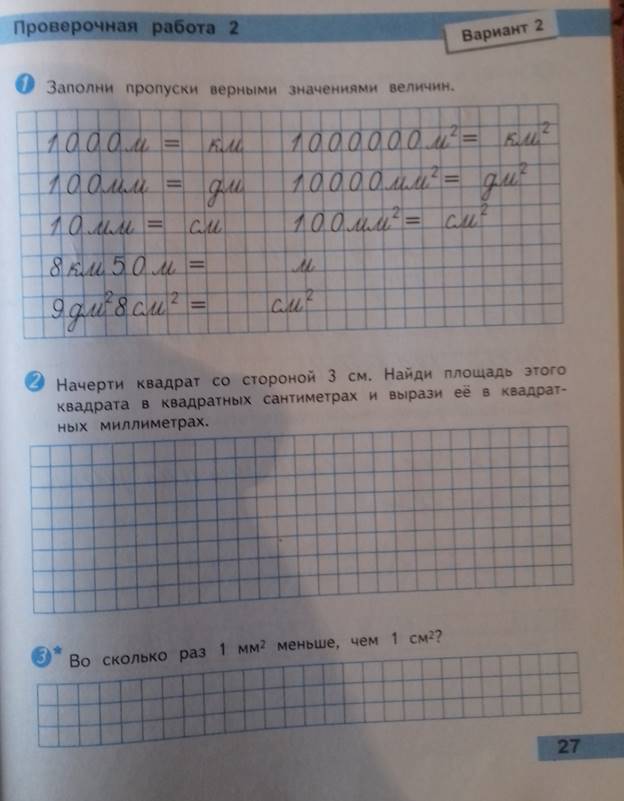 Проверочная работа 2
Вариант 2
1 Заполни пропуски верными значениями величин.
1000м = км 1000000м²= км²
100мм = дм 10000мм²= дм²
10мм = см 100мм²= см²
8км 50м = м
9дм²8см² = см²
2 Начерти квадрат со стороной 3 см. Найди площадь этого
квадрата в квадратных сантиметрах и вырази её в квадрат-
ных миллиметрах.
3* Во сколько раз 1 мм² меньше, чем 1 см²?
27